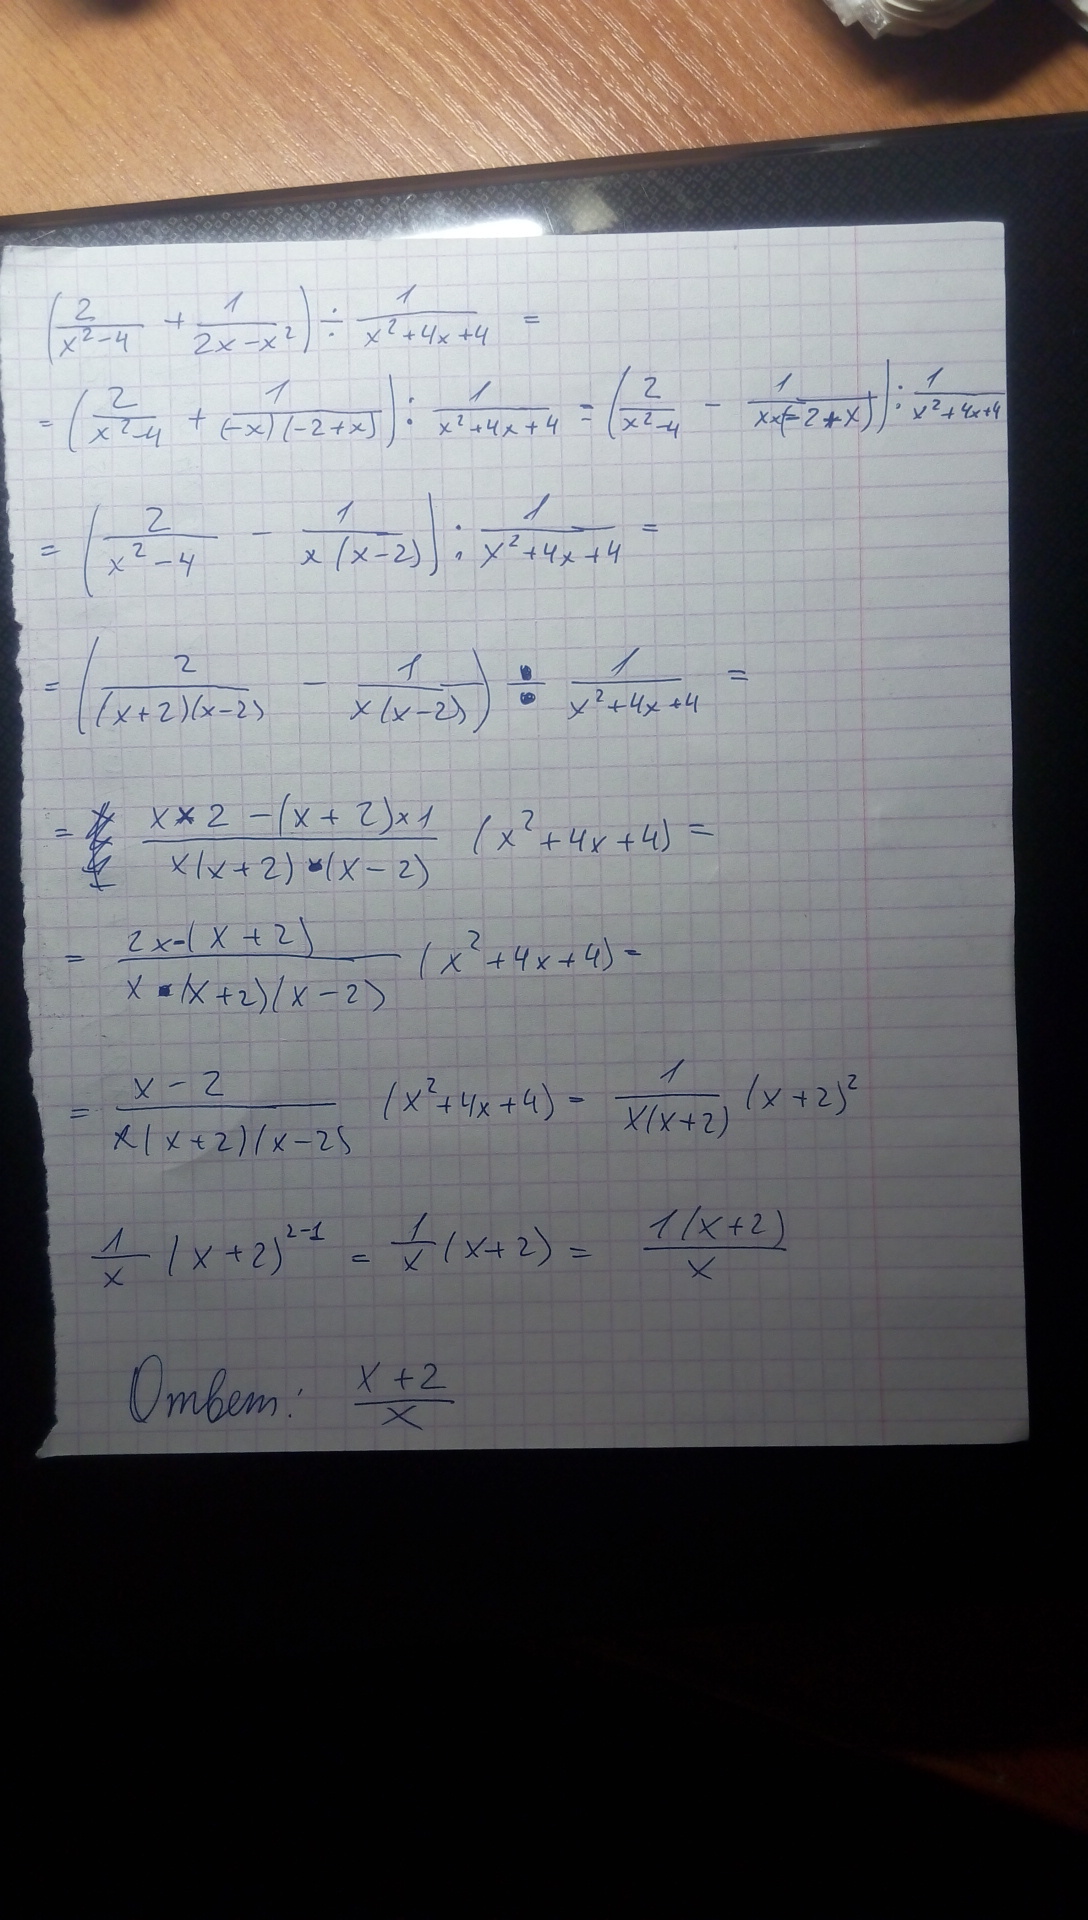 (2/(x²-4) + 1/(2x-x²)) ÷ 1/(x²+4x+4) =
= (2/(x²-4) + 1/((-x)(-2+x))) : 1/(x²+4x+4) = (2/(x²-4) - 1/(x×(-2+x))) : 1/(x²+4x+4)
= (2/(x²-4) - 1/(x(x-2))) : 1/(x²+4x+4) =
= (2/((x+2)(x-2)) - 1/(x(x-2))) ÷ 1/(x²+4x+4) =
= (x×2-(x+2)×1)/(x(x+2)·(x-2)) (x²+4x+4) =
= (2x-(x+2))/(x·(x+2)(x-2)) (x²+4x+4) =
= (x-2)/(x(x+2)(x-2)) (x²+4x+4) = 1/(x(x+2)) (x+2)²
1/x (x+2)²⁻¹ = 1/x (x+2) = 1(x+2)/x
Ответ: (x+2)/x